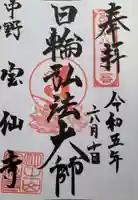 奉拝
令和五年
六月十日
日輪弘法大師
中野
宝仙寺